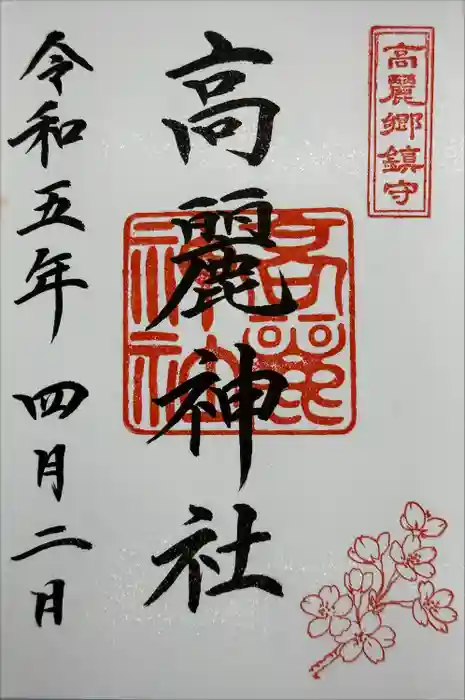 高麗郷鎮守
高麗神社
高麗神社
令和五年四月二日